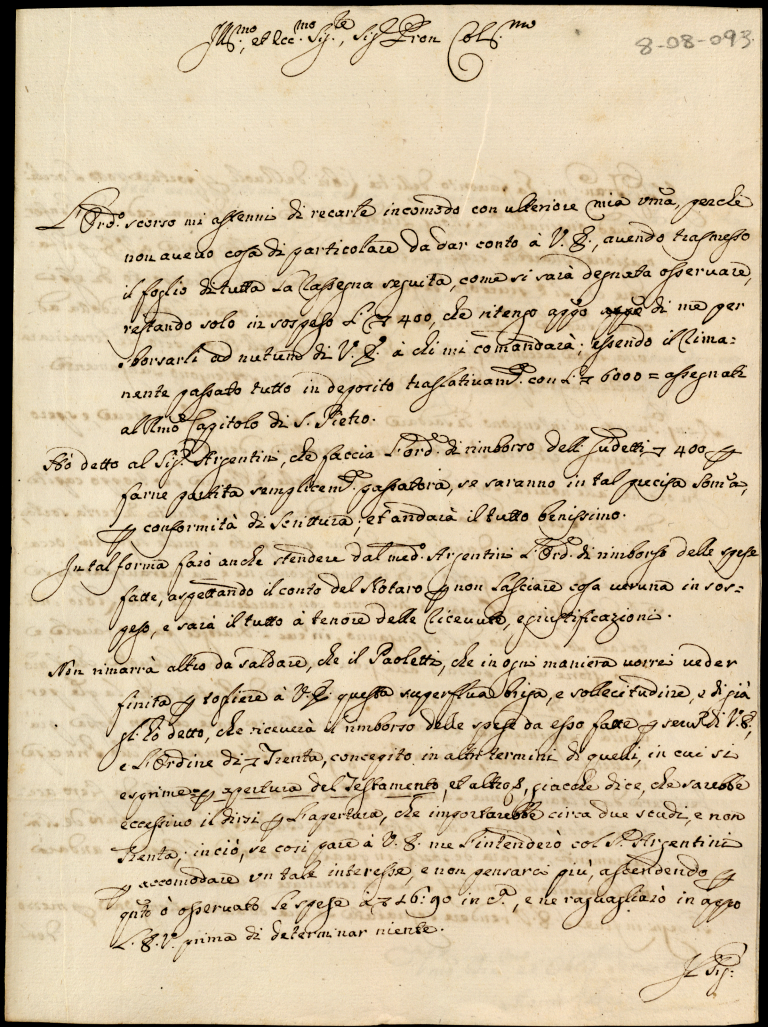 Ill.mo, et Ecc.mo Sig.re, Sig.r Pron Col.mo
8-08-093.
L'Ord.o scorso mi astenni di recarle incomodo con ulteriore mia uma, perche
non aueuo cosa di particolare da dar conto à V. E., auendo trasmesso
il foglio di tutta la Rassegna seguita, come si sarà degnata osseruare,
restando solo in sospeso L. 400, che ritengo appo di me per
sborsarli ad nutum di V. E. à chi mi comandarà; essendo il Rima=
nente passato tutto in deposito traslatiuam.te con L. 6000 = assegnati
al Rmo Capitolo di S. Pietro.
Hò detto al Sig.r Argentini, che faccia l'ord.e di rimborso delli sudetti 400 p
farne partita semplicem.te passatora, se saranno in tal precisa soma,
p conformità di scrittura; et andarà il tutto benissimo.
In tal forma farò anche stendere dal med.o Argentini l'Ord.e di rimborso delle spese
fatte, aspettando il conto del Notaro p non lasciare cosa ueruna in sos=
peso, e sarà il tutto à tenore delle Riceuute, e giustificazioni.
Non rimarrà altro da saldare, che il Paoletti, che in ogni maniera uorrei ueder
finita p togliere à V. E. questa superflua briga, e sollecitudine, e di già
gli hò detto, che riceuerà il rimborso delle spese da esso fatte p seru.o di V. E.,
e l'Ordine di Trenta, concepito in altri termini di quelli, in cui si
esprime p apertura del Testamento, et altro, giacche dice, che sarebbe
eccessiuo il dirsi p l'apertura, che importarebbe circa due scudi, e non
Trenta; in ciò, se così pare à V. E. me l'intenderò col S.r Argentini
p accomodare un tale interesse, e non pensarci più, ascendendo p
q.nto ò osseruato le spese à 46:90 in c.a, e ne raguagliarò in appo
L. E. V. prima di determinar niente.
Il Sig: